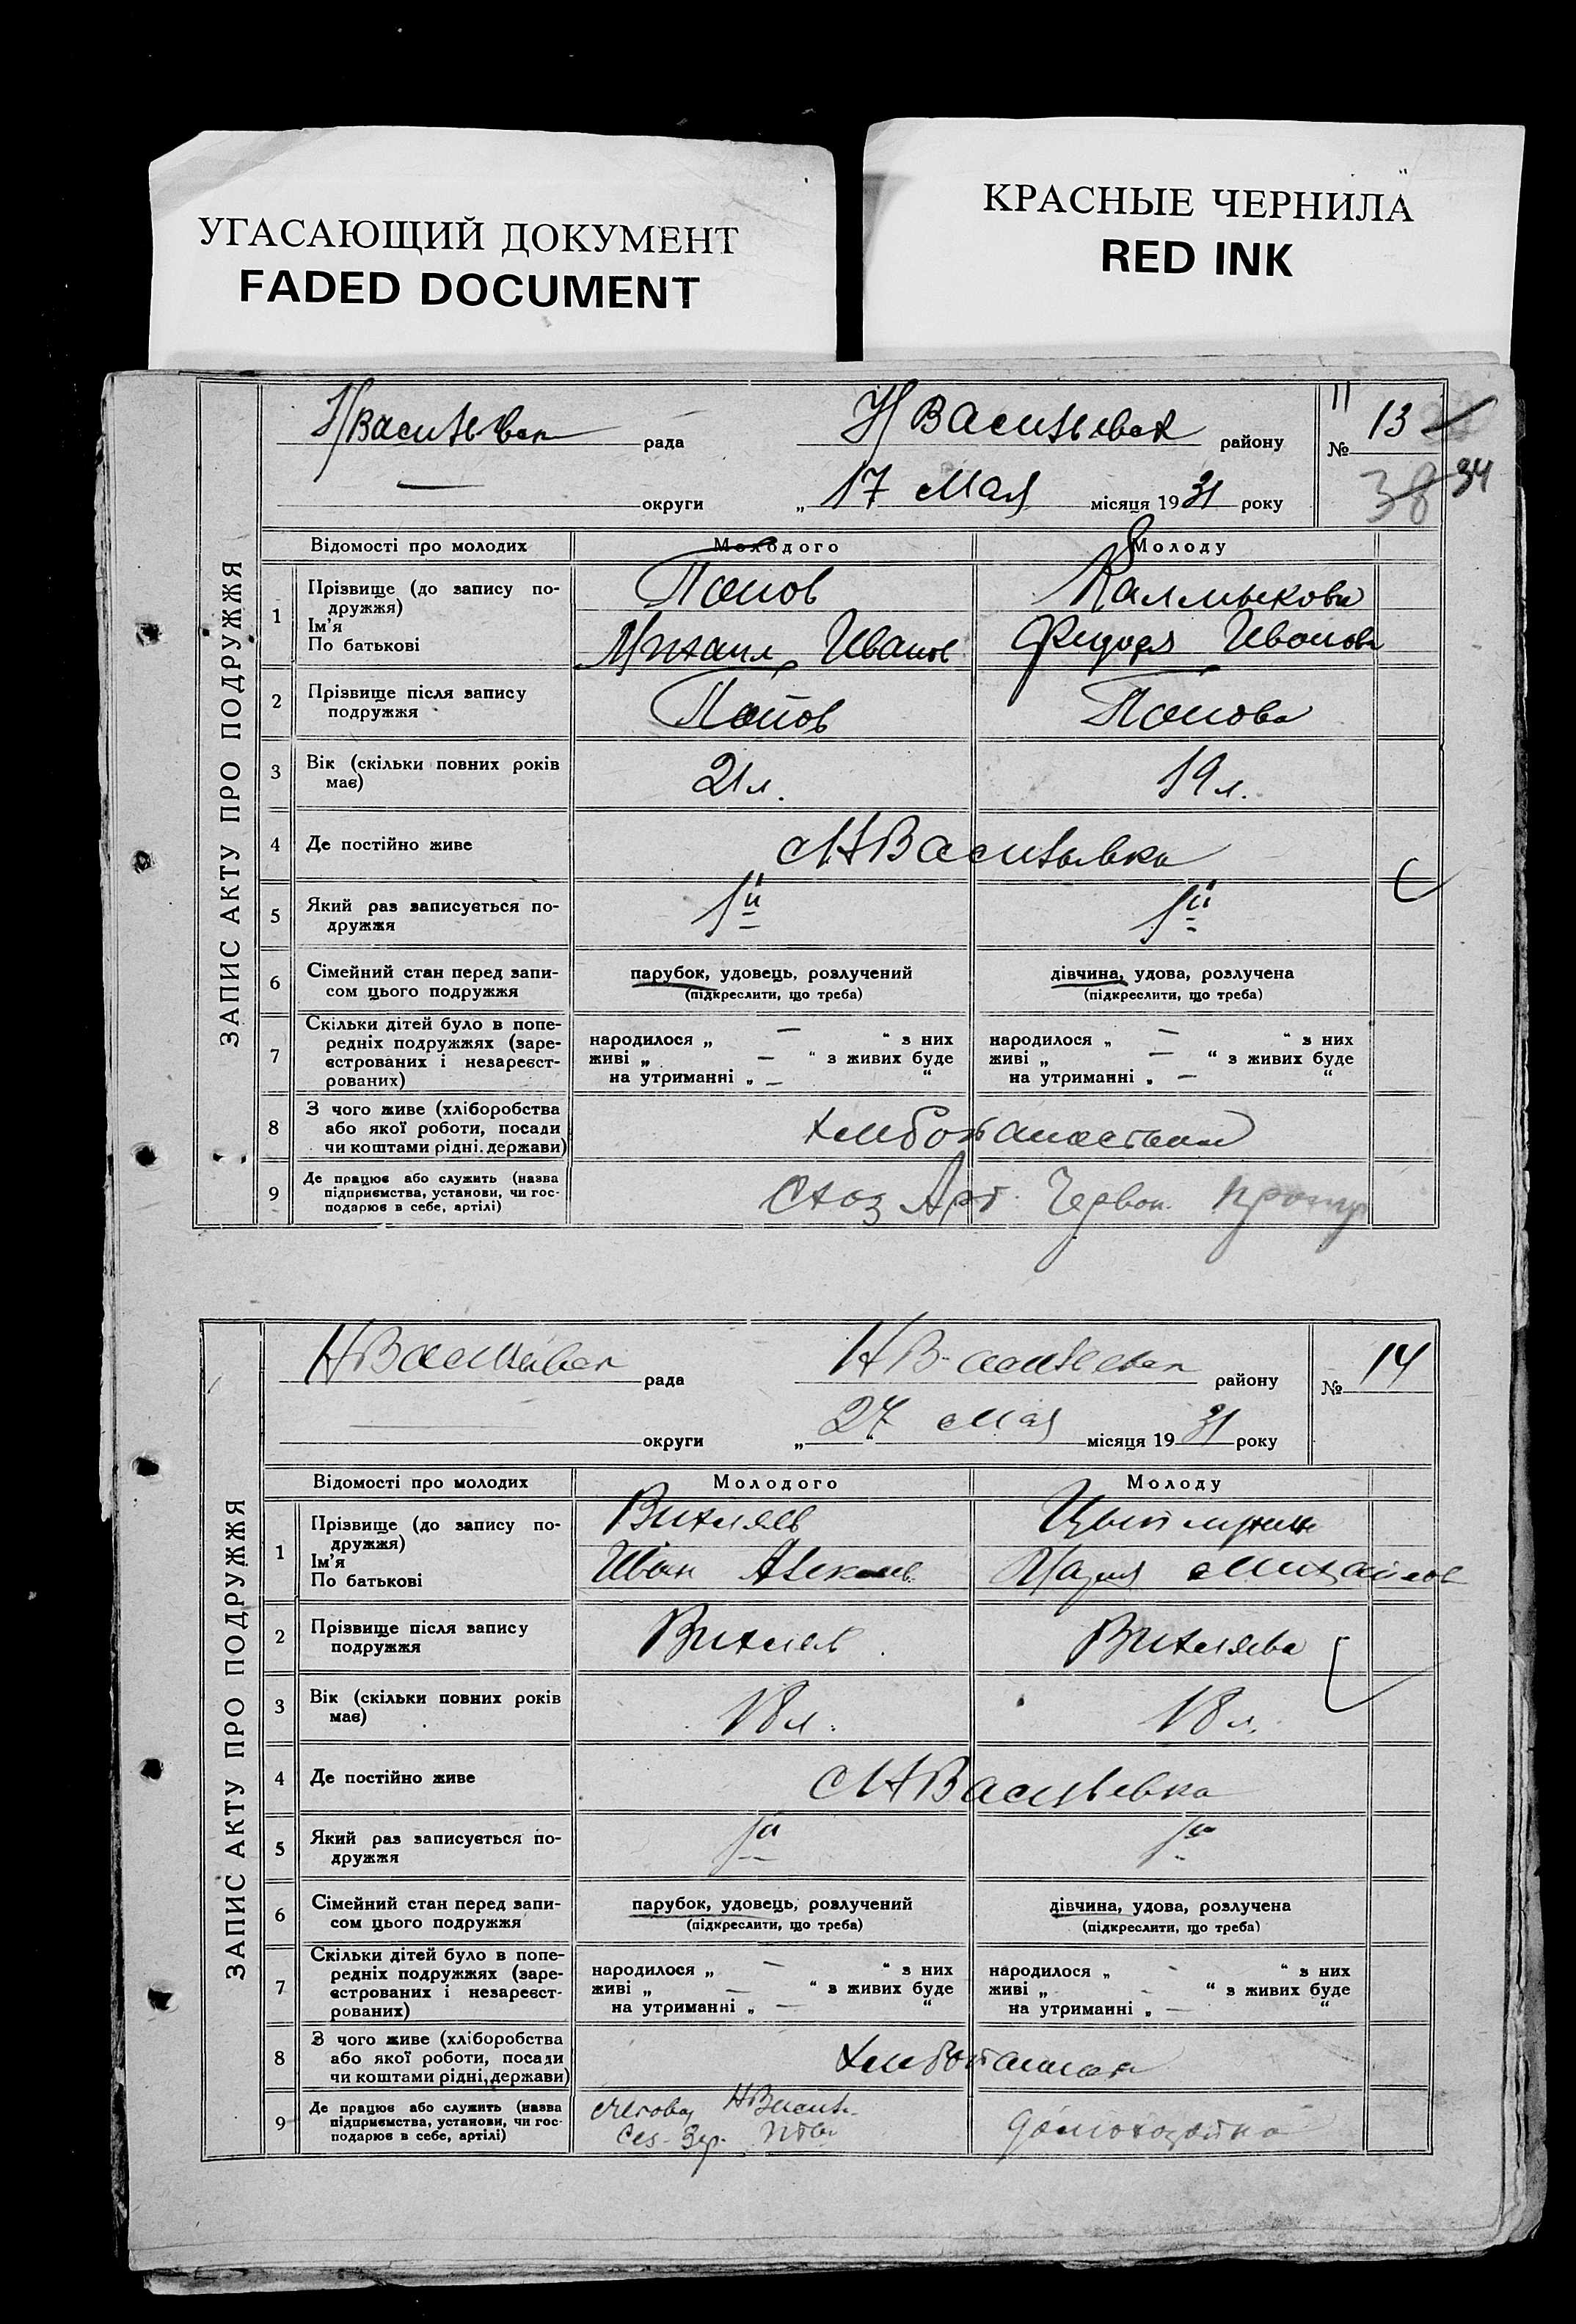 УГАСАЮЩИЙ ДОКУМЕНТ
FADED DOCUMENT
КРАСНЫЕ ЧЕРНИЛА
RED INK
ЗАПИС АКТУ ПРО ПОДРУЖЖЯ
НВасильевск рада НВасильевск району № 13
34
38
— округи „ 17 Мая місяця 1931 року
Відомості про молодих Молодого Молоду
1 Прізвище (до запису по-
дружжя) Попов Калмыкова
Ім'я
По батькові Михаил Иванов Федора Иванова
2 Прізвище після запису
подружжя Попов Попова
3 Вік (скільки повних років
має) 21 л. 19 л.
4 Де постійно живе с НВасильевка
5 Який раз записується по-
дружжя 1й 1й
6 Сімейний стан перед запи-
сом цього подружжя парубок, удовець, розлучений дівчина, удова, розлучена
(підкреслити, що треба) (підкреслити, що треба)
7 Скільки дітей було в попе-
редніх подружжях (заре-
єстрованих і незареєст-
рованих)
народилося „ — “ з них народилося „ — “ з них
живі „ — “ з живих буде живі „ — “ з живих буде
на утриманні „ — “ на утриманні „ — “
8 З чого живе (хліборобства
або якої роботи, посади
чи коштами рідні. держави)
9 Де працює або служить (назва
підприємства, установи, чи гос-
подарює в себе, артілі) Схоз Арт. Червон.
ЗАПИС АКТУ ПРО ПОДРУЖЖЯ
НВасильевск рада НВ-асильевск району № 14
округи „ 27 “ Мая місяця 1931 року
Відомості про молодих Молодого Молоду
1 Прізвище (до запису по-
дружжя) Вихляев
Ім'я
По батькові Иван Алексеев. Мария Михайлов
2 Прізвище після запису
подружжя Вихляев Вихляева
3 Вік (скільки повних років
має) 18 л. 18 л.
4 Де постійно живе с НВасильевка
5 Який раз записується по-
дружжя 1й 1й
6 Сімейний стан перед запи-
сом цього подружжя парубок, удовець, розлучений дівчина, удова, розлучена
(підкреслити, що треба) (підкреслити, що треба)
7 Скільки дітей було в попе-
редніх подружжях (заре-
єстрованих і незареєст-
рованих)
народилося „ — “ з них народилося „ - “ з них
живі „ — “ з живих буде живі „ - “ з живих буде
на утриманні „ — “ на утриманні „ — “
8 З чого живе (хліборобства
або якої роботи, посади
чи коштами рідні, держави)
9 Де працює або служить (назва
підприємства, установи, чи гос-
подарює в себе, артілі) НВасиль. домохозяйка